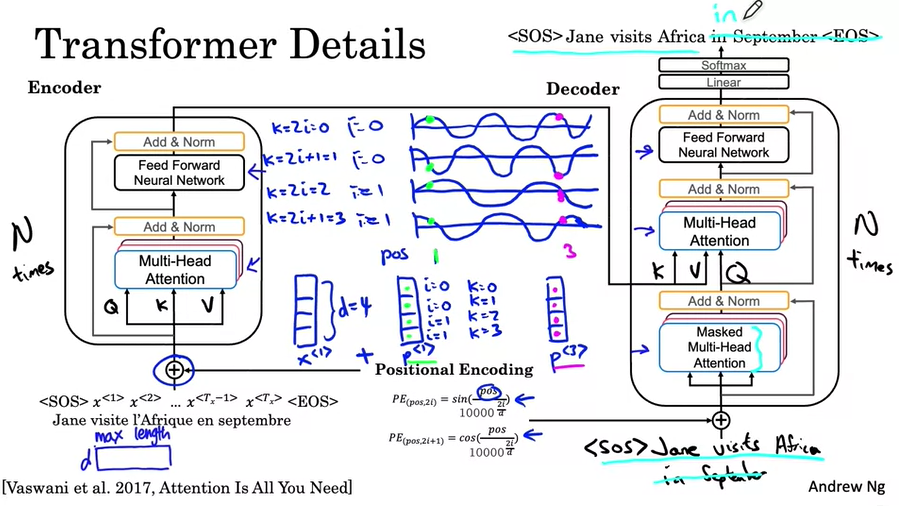 in
<SOS> Jane visits Africa in September <EOS>
Transformer Details
Softmax
Linear
Encoder
Decoder
Add & Norm
Feed Forward
Neural Network
Add & Norm
Multi-Head
Attention
Q K V
N
times
k=2i=0 i=0
k=2i+1=1 i=0
k=2i=2 i=1
k=2i+1=3 i=1
pos 1 3
d=4
i=0 k=0
i=0 k=1
i=1 k=2
i=1 k=3
x<1> + p<1> p<3>
Add & Norm
Feed Forward
Neural Network
Add & Norm
Multi-Head
Attention
K V Q
N
times
Add & Norm
Masked
Multi-Head
Attention
Positional Encoding
PE(pos,2i) = sin(pos/10000^(2i/d))
PE(pos,2i+1) = cos(pos/10000^(2i/d))
<SOS> x<1> x<2> … x<Tx−1> x<Tx> <EOS>
Jane visite l'Afrique en septembre
max length
d
<SOS> Jane visits Africa
in September
[Vaswani et al. 2017, Attention Is All You Need]
Andrew Ng